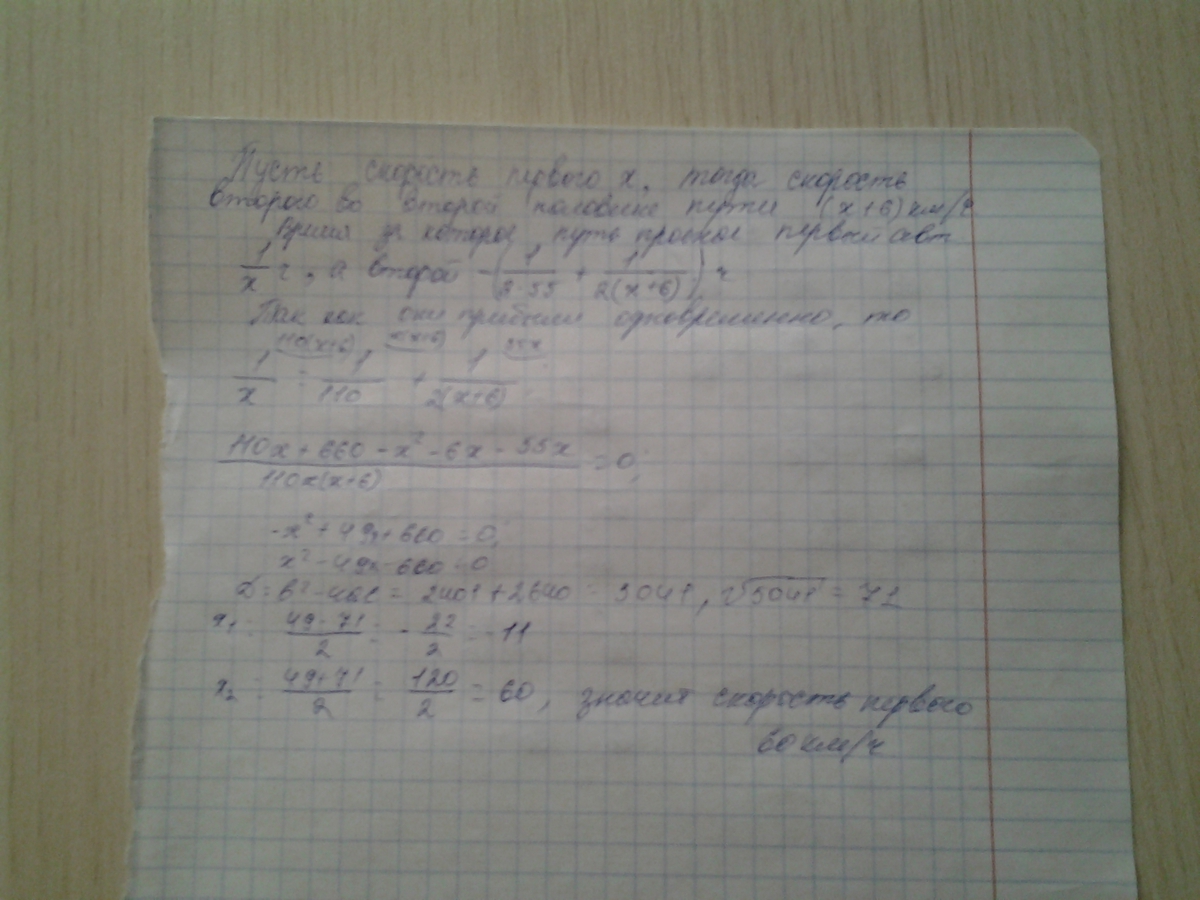 Пусть скорость первого x, тогда скорость
второго во второй половине пути (x+6) км/ч
Время за которое путь проехал первый авт
1/x ч, а второй - (1/(2·55) + 1/(2(x+6))) ч
Так как они прибыли одновременно, то
1/x = 1/110 + 1/(2(x+6))
(110x + 660 - x² - 6x - 55x)/(110x(x+6)) = 0;
-x² + 49x + 660 = 0;
x² - 49x - 660 = 0
D = b² - 4ac = 2401 + 2640 = 5041, √5041 = 71
x₁ = (49-71)/2 = -22/2 = -11
x₂ = (49+71)/2 = 120/2 = 60, значит скорость первого
60 км/ч